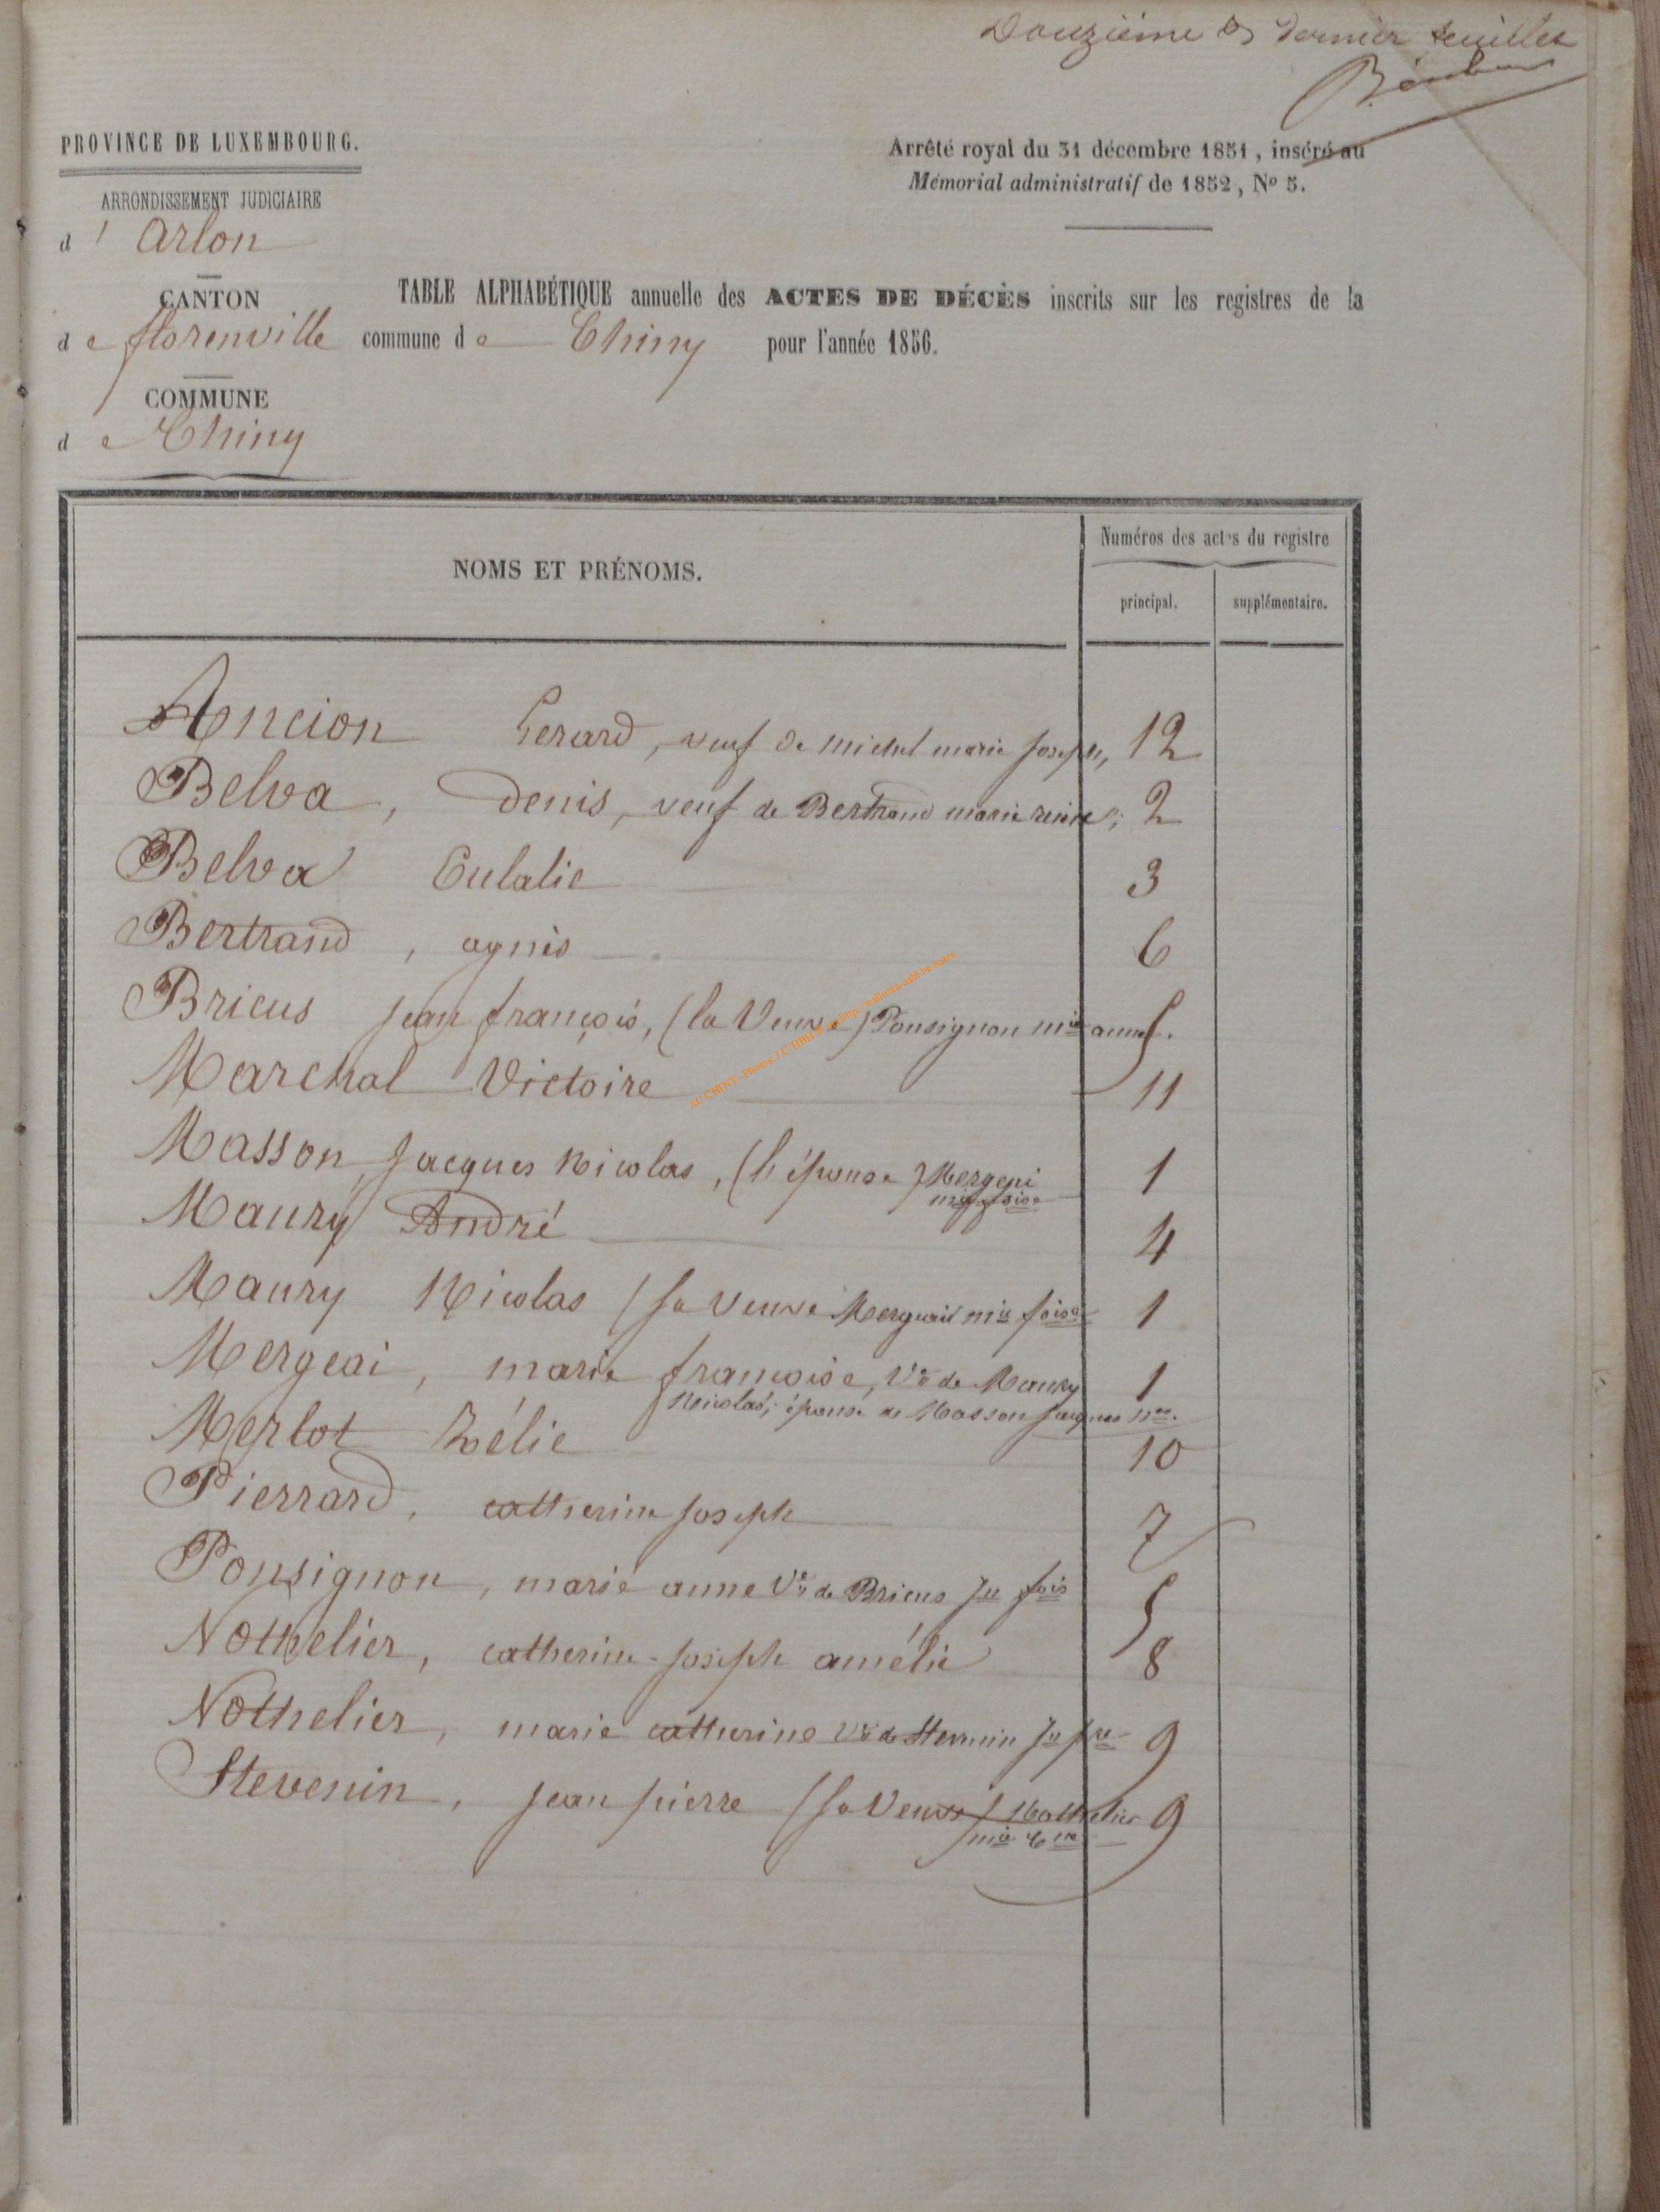 Douzième & dernier feuillet
PROVINCE DE LUXEMBOURG.
Arrêté royal du 31 décembre 1851, inséré au
Mémorial administratif de 1852, No 5.
ARRONDISSEMENT JUDICIAIRE
d'Arlon
CANTON
de florenville
COMMUNE
de Chiny
TABLE ALPHABÉTIQUE annuelle des ACTES DE DÉCÈS inscrits sur les registres de la
commune de Chiny pour l'année 1856.
NOMS ET PRÉNOMS.
Numéros des actes du registre
principal.
supplémentaire.
Ancion Gerard, veuf de michel marie joseph, 12
Belva, Denis, veuf de Bertrand marie reine; 2
Belva Eulalie 3
Bertrand, agnès 6
Bricus jean françois, (la Veuve) Ponsignon mie anne. 5
Marchal Victoire 11
Masson, jacques Nicolas, (l'épouse) Mergeai 1
mie fsise
Maury André 4
Maury Nicolas (sa veuve Mergeai mie foise 1
Mergeai, marie françoise, Ve de Maury 1
Nicolas, épouse de Masson jacques nas.
Merlot Zélie 10
Pierrard, catherine joseph 7
Ponsignon, marie anne Ve de Bricus jn fois 5
Nothelier, catherine-joseph amélie 8
Nothelier, marie catherine Ve de Stevenin jn pre 9
Stevenin, jean pierre (sa Veuve) Nothelier 9
mie Cne